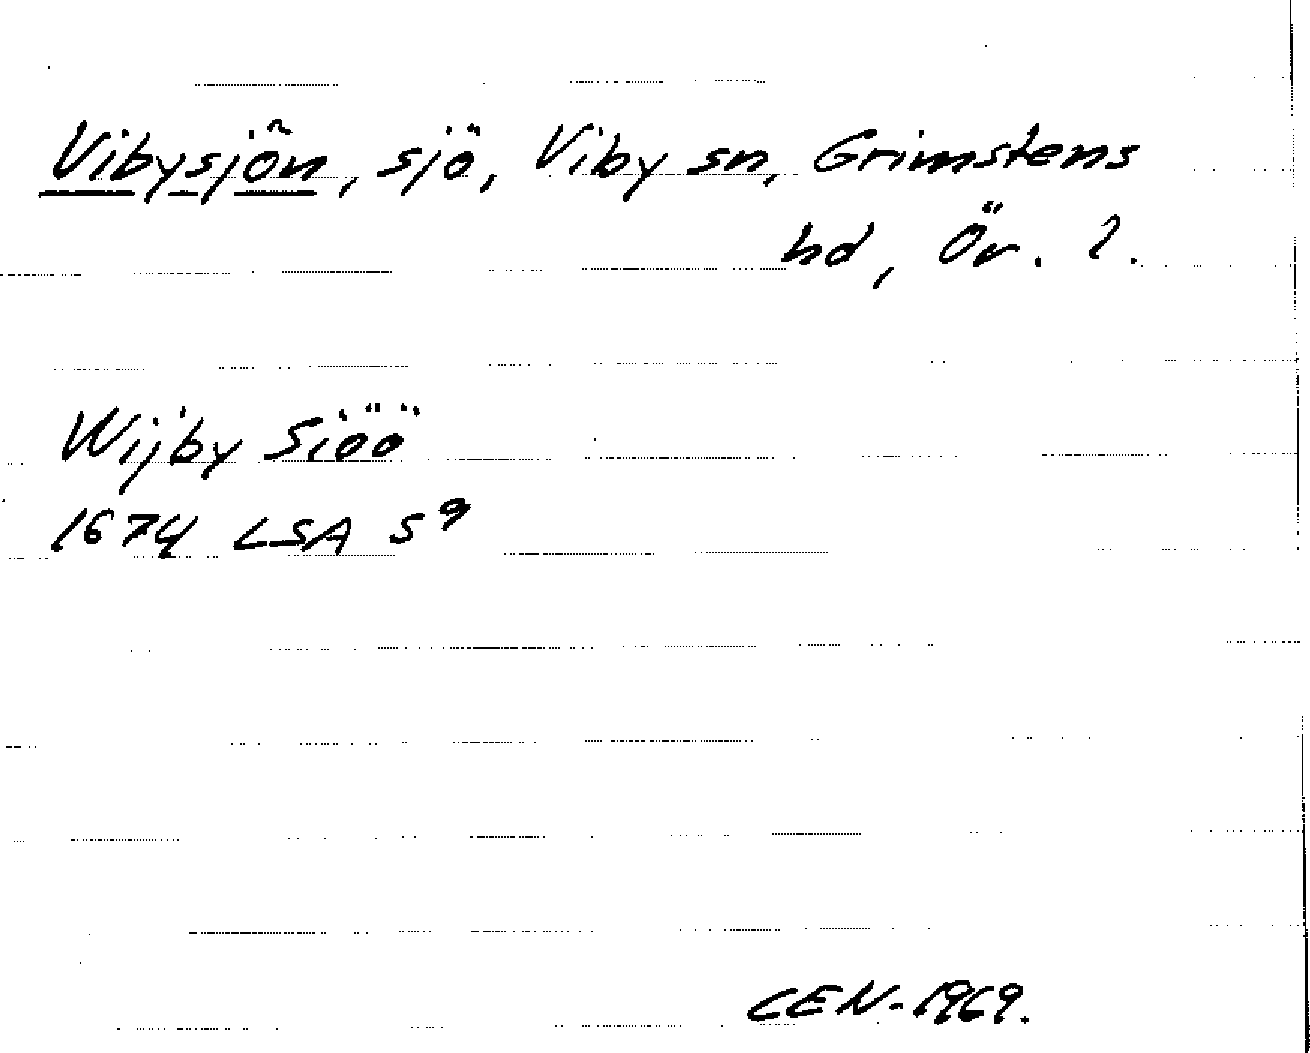 Vibysjön, sjö, Viby sn, Grimstens
hd, Ör. l.
Wijby Siöö
1674 LSA S 9
CEN-1969.